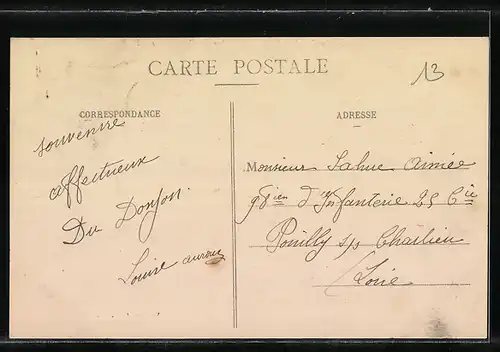 CARTE POSTALE
13
CORRESPONDANCE
ADRESSE
souvenire
affectueux
Du Donjon.
Louise
Monsieur Sahuc Aimée
98ième d'Infanterie 25 Cie
Pouilly s/s Charlieu
(Loire